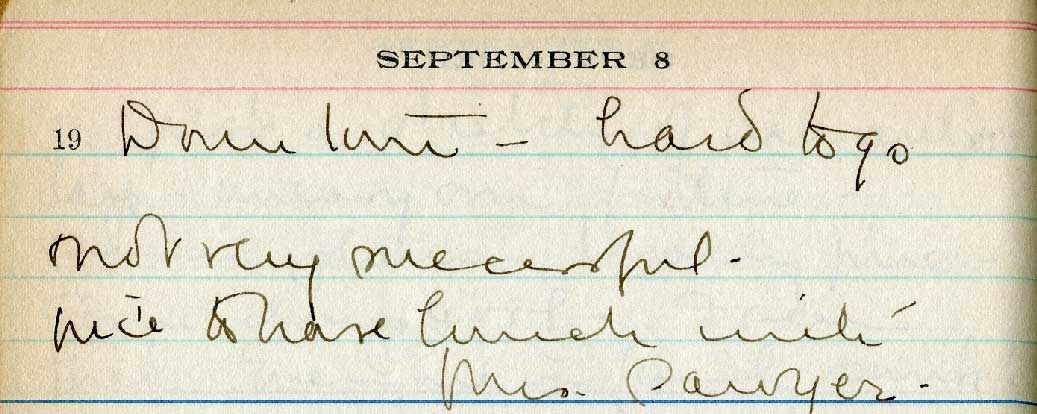 SEPTEMBER 8
19 Down town – hard to go
not very successful.
nice to have lunch with
Mrs. Sawyer.